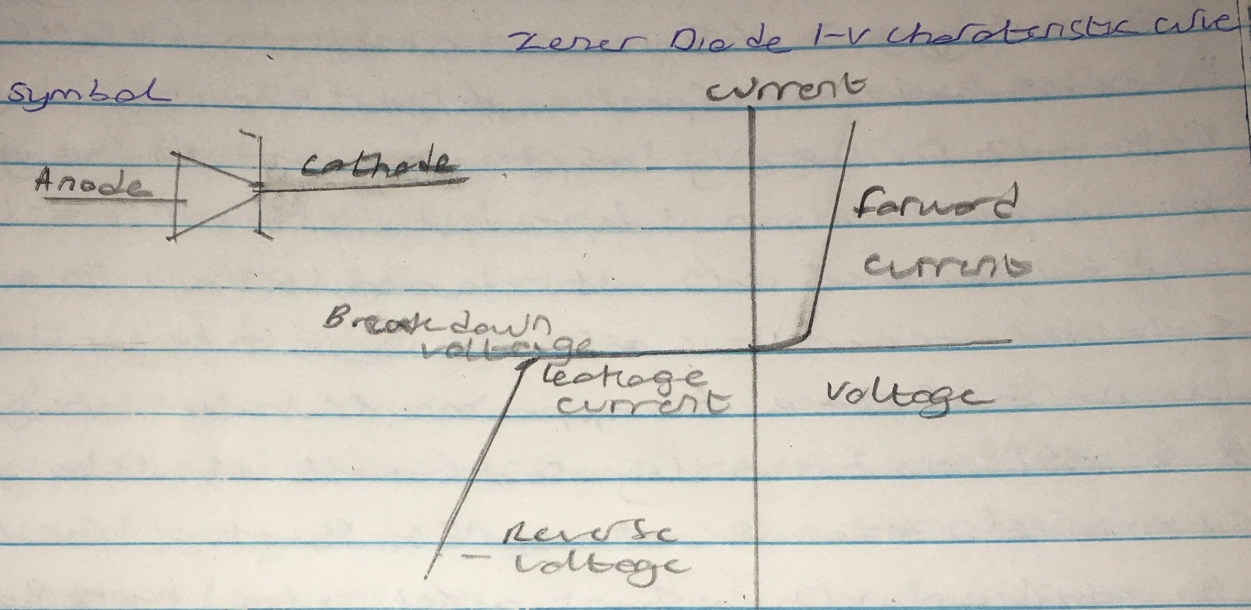 Zener Diode I-V Charateristic curve
Symbol
current
Anode
cathode
Forward
current
Breakdown
voltage
leakage
current
voltage
Reverse
- voltage